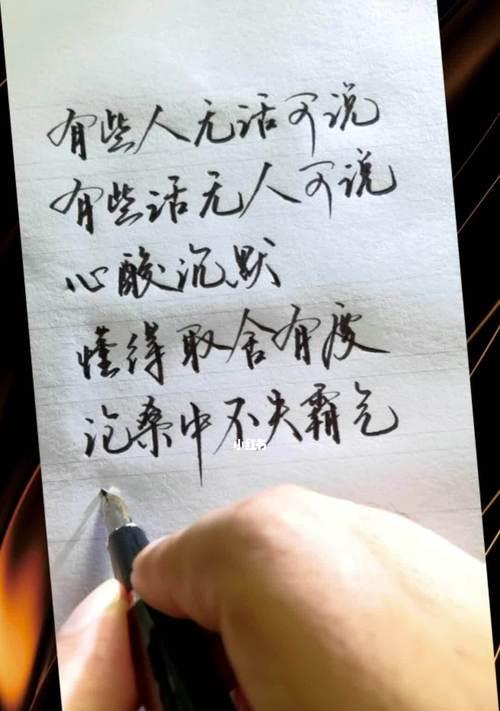 有些人无话可说
有些话无人可说
心酸沉默
懂得取舍有度
沧桑中不失霸气
小红书